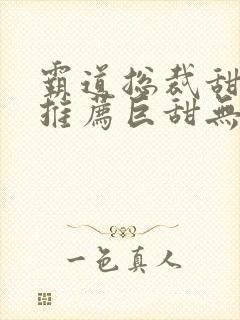 霸道总裁甜
推薦巨甜無
一色真人